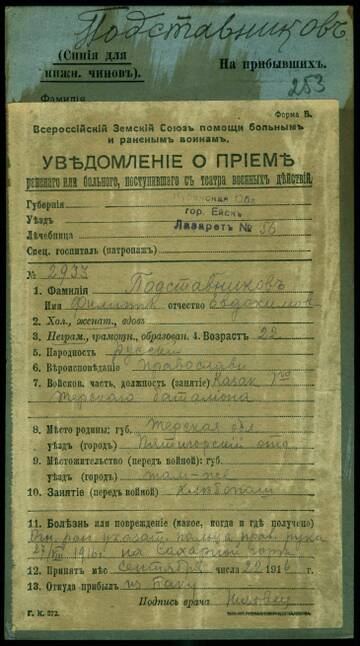 Подставниковъ
(Синія для
нижн. чиновъ).
На прибывшихъ.
253
Фамилія
Форма В.
Всероссійскій Земскій Союзъ помощи больнымъ
и раненымъ воинамъ.
УВѢДОМЛЕНІЕ О ПРІЕМѢ
раненаго или больного, поступившаго съ театра военныхъ дѣйствій.
Губернія Кубанская Обл
Уѣздъ гор. Ейскъ
Лѣчебница Лазаретъ № 56
Спец. госпиталь (патронаж)
№ 2937
1. Фамилія Подставниковъ
Имя Филиппъ отчество Евдокимов
2. Хол., женат., вдовъ
3. Неграм., грамотн., образован. 4. Возрастъ 22
5. Народность русскій
6. Вѣроисповѣданіе Православн
7. Войсков. часть, должность (занятіе) Казак 7го
Терскаго батальона
8. Мѣсто родины: губ. Терская обл
уѣздъ (городъ) Пятигорскій отд.
9. Мѣстожительство (передъ войной): губ.
уѣздъ (городъ) там-же
10. Занятіе (передъ войной) Хлѣбопаш
11. Болѣзнь или поврежденіе (какое, когда и гдѣ получено)
ран указат. пальца прав. руки
27/VIII 1916 г. на Сахарной горѣ
12. Принятъ мѣс сентября числа 22 1916
13. Откуда прибылъ из Баку
Подпись врача
Г. К. 372.